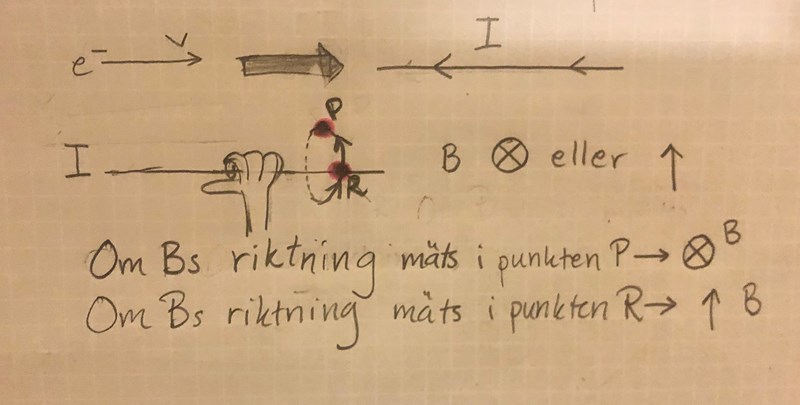 e⁻ v I
P
I B ⊗ eller ↑
R
Om Bs riktning mäts i punkten P→ ⊗ B
Om Bs riktning mäts i punkten R→ ↑ B